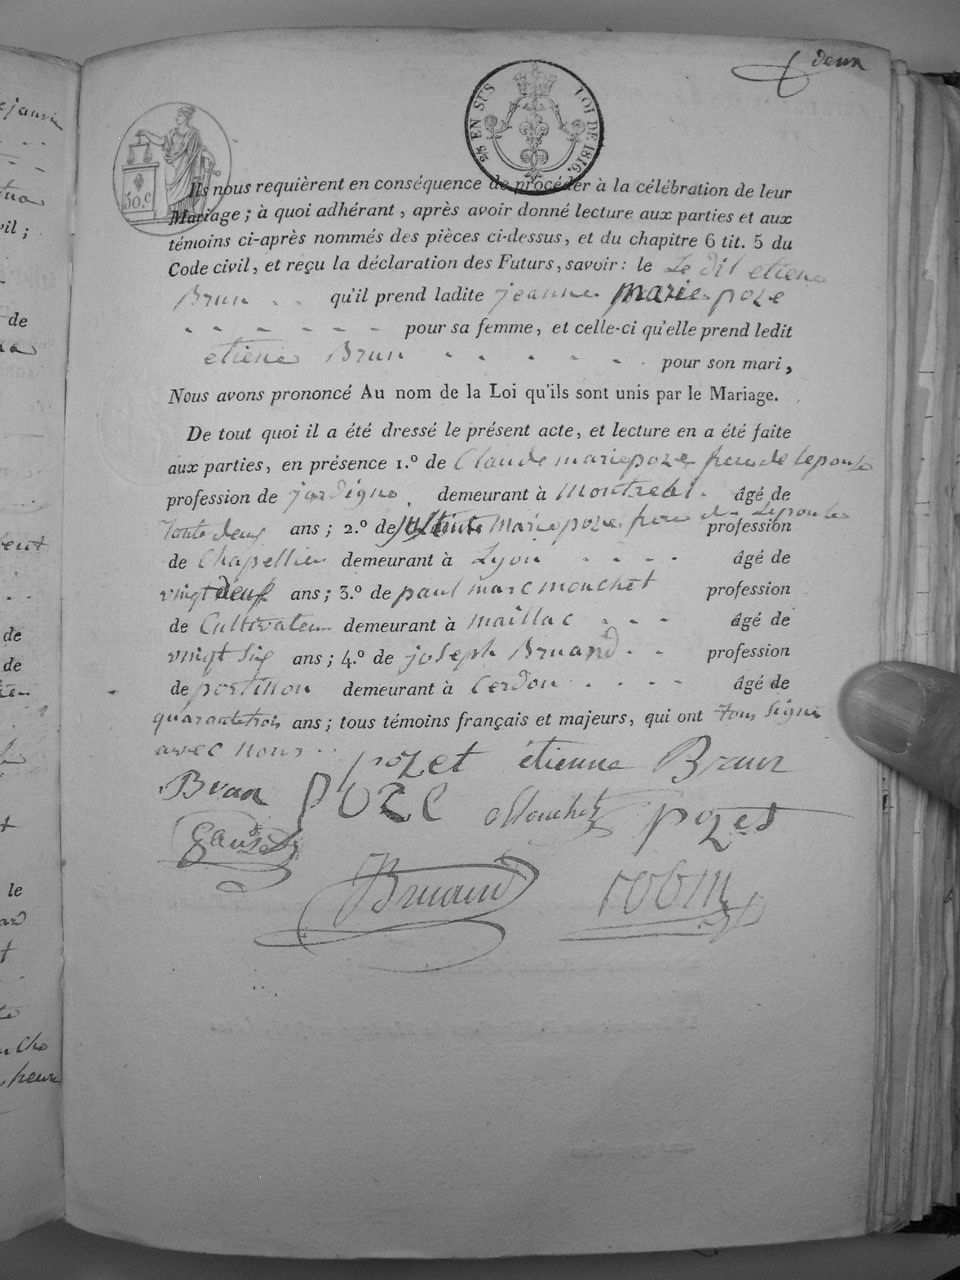 deux
2/5 EN SUS LOI DE 1816.
50.c
Ils nous requièrent en conséquence de procéder à la célébration de leur
Mariage ; à quoi adhérant, après avoir donné lecture aux parties et aux
témoins ci-après nommés des pièces ci-dessus, et du chapitre 6 tit. 5 du
Code civil, et reçu la déclaration des Futurs, savoir : le Le dit etiene
Brun qu'il prend ladite jeanne marie poze
pour sa femme, et celle-ci qu'elle prend ledit
etiene Brun pour son mari,
Nous avons prononcé Au nom de la Loi qu'ils sont unis par le Mariage.
De tout quoi il a été dressé le présent acte, et lecture en a été faite
aux parties, en présence 1.º de Claude marie poze frere de lepouse
profession de demeurant à Montreal. âgé de
ans ; 2.º de Marie poze frere de Lepouse profession
de Chapellier demeurant à Lyon âgé de
vingt deux ans ; 3.º de paul marc mouchet profession
de Cultivateur demeurant à maillac âgé de
vingt six ans ; 4.º de joseph Bruand profession
de postillon demeurant à Cerdon âgé de
quarante trois ans ; tous témoins français et majeurs, qui ont tous signé
avec nous
pozet étienne Brun
Brun poze Mouchet pozet
Bruand robin